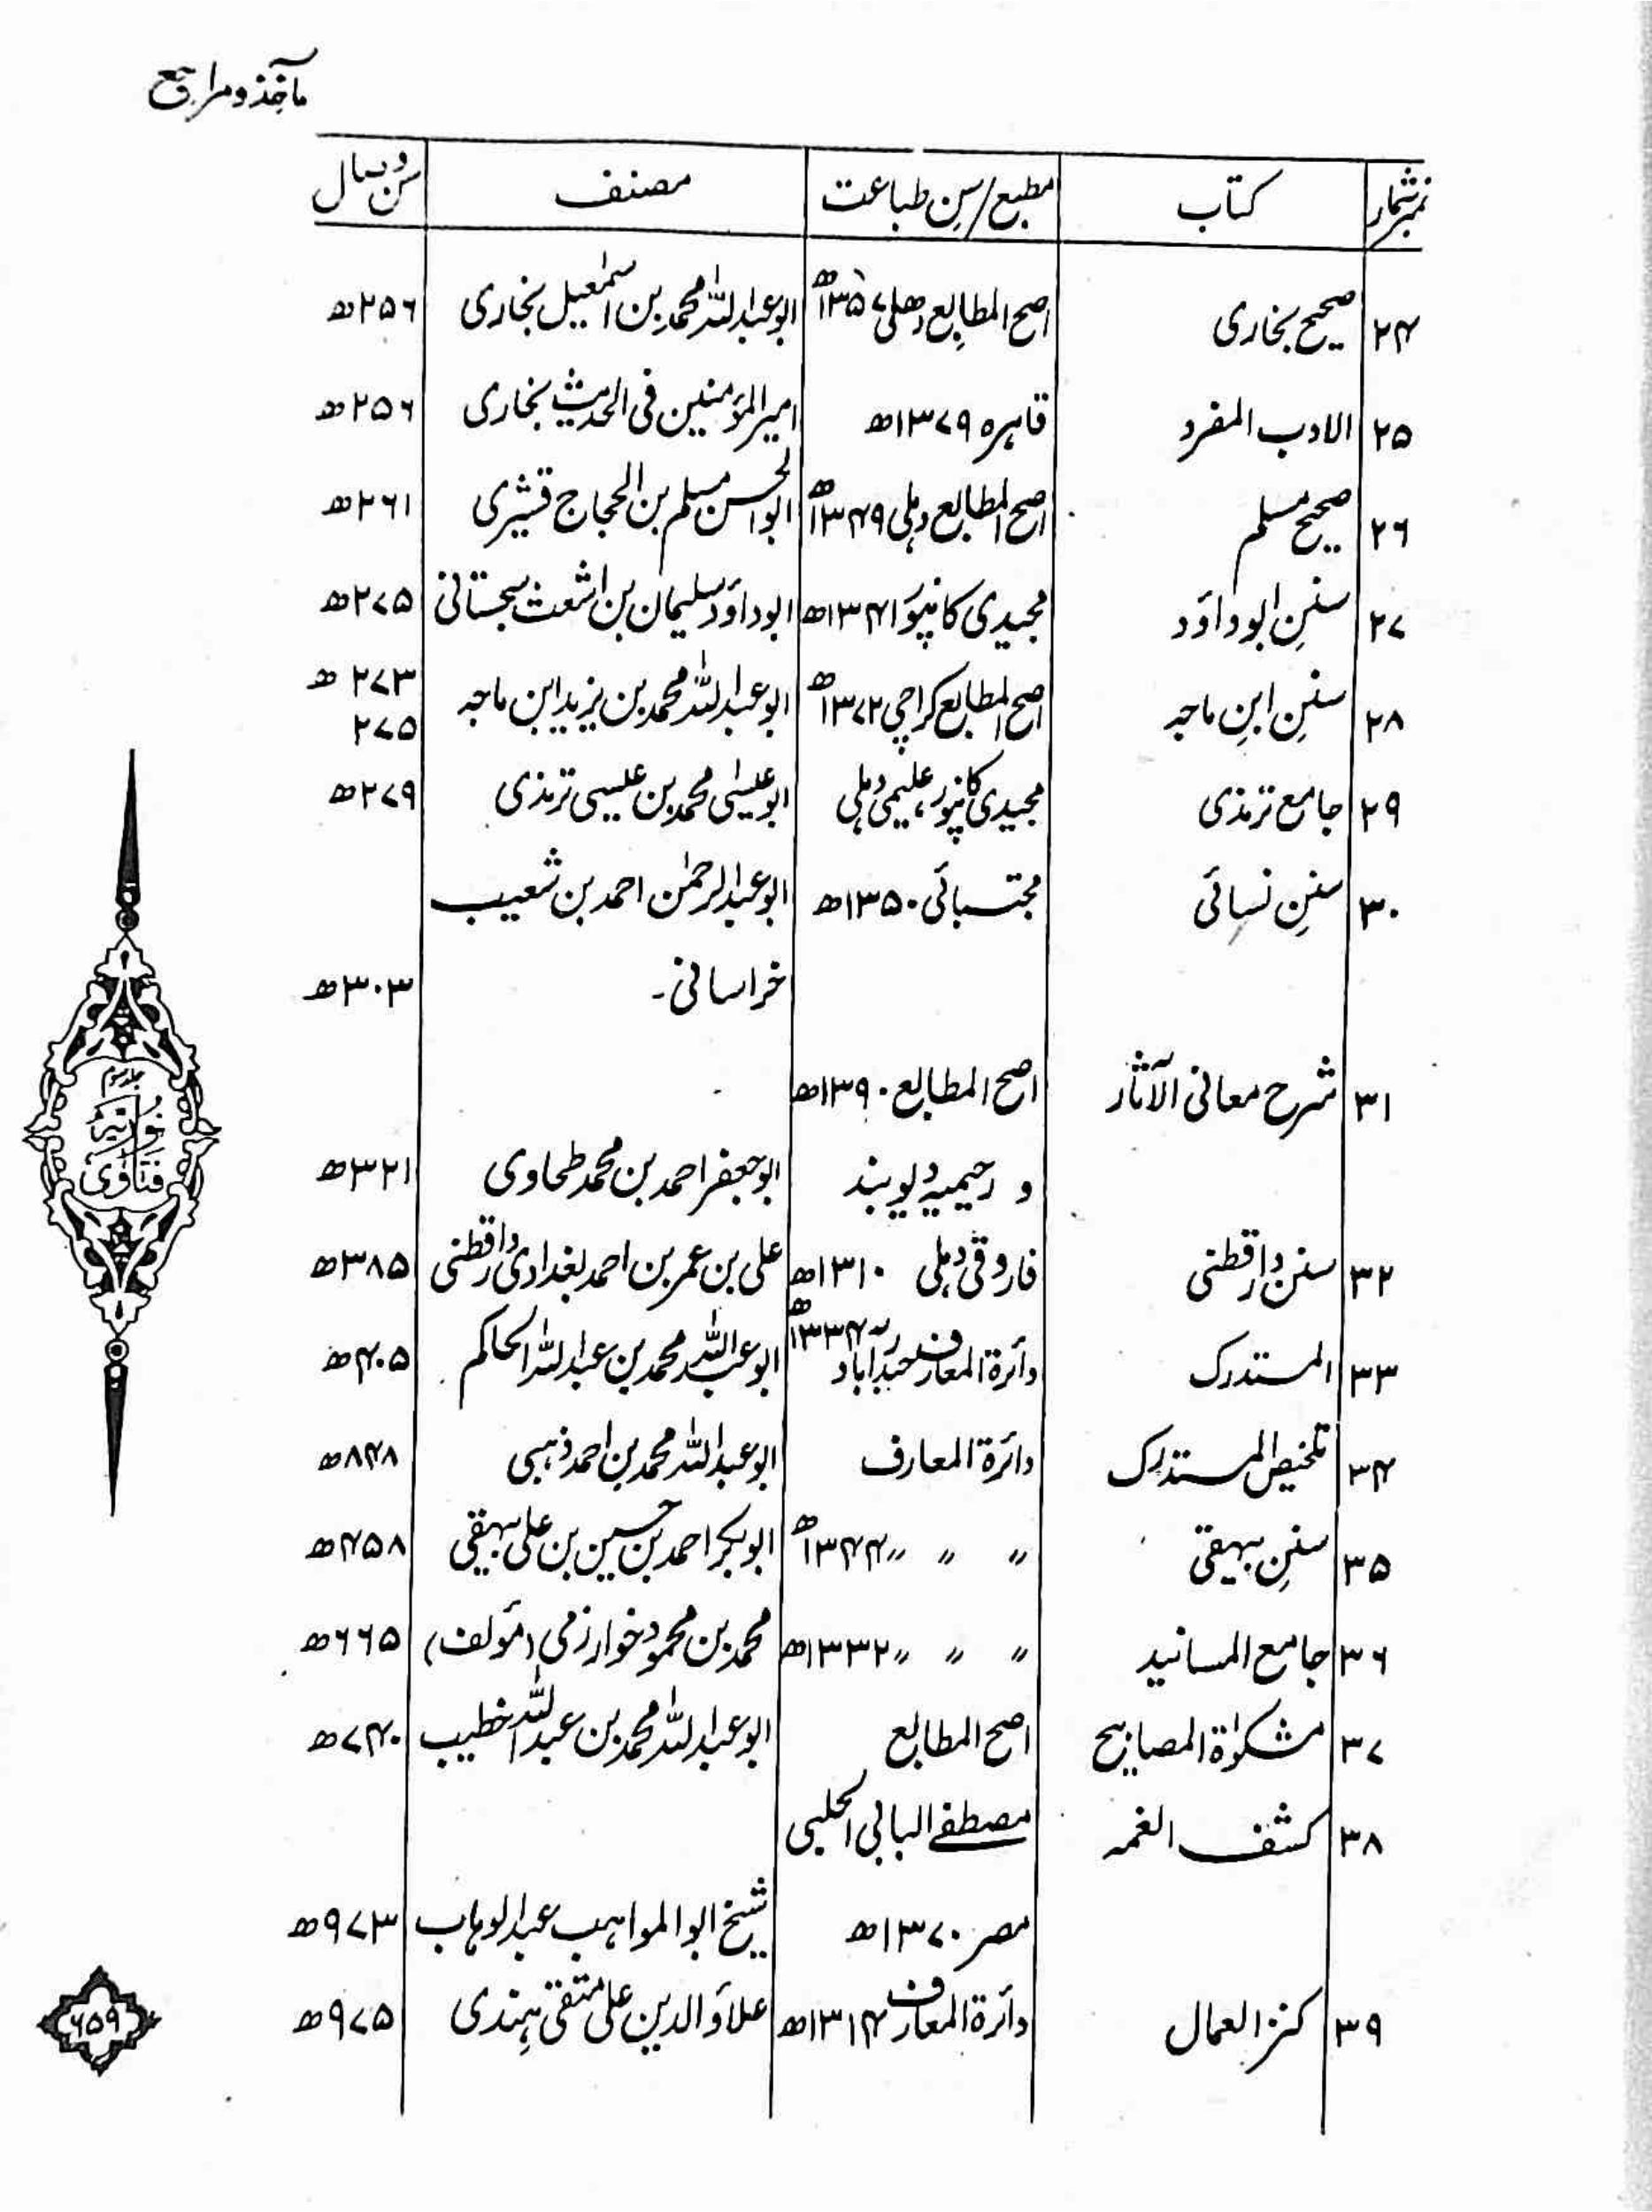 مآخذ و مراجع
نمبر شمار کتاب مطبع/سنِ طباعت مصنف سن وصال
۲۴ صحیح بخاری اصح المطابع دھلی ۱۳۵۷ھ ابو عبداللہ محمد بن اسمٰعیل بخاری ۲۵۶ھ
۲۵ الادب المفرد قاہرہ ۱۳۷۹ھ امیر المؤمنین فی الحدیث بخاری ۲۵۶ھ
۲۶ صحیح مسلم اصح المطابع دہلی ۱۳۴۹ھ ابو الحسن مسلم بن الحجاج قشیری ۲۶۱ھ
۲۷ سننِ ابو داؤد مجیدی کانپور ۱۳۴۱ھ ابو داؤد سلیمان بن اشعث سجستانی ۲۷۵ھ
۲۸ سننِ ابنِ ماجہ اصح المطابع کراچی ۱۳۷۲ھ ابو عبداللہ محمد بن یزید ابن ماجہ ۲۷۳ھ
۲۷۵
۲۹ جامع ترمذی مجیدی کانپور، علیمی دہلی ابو عیسٰی محمد بن عیسی ترمذی ۲۷۹ھ
۳۰ سننِ نسائی مجتبائی ۱۳۵۰ھ ابو عبدالرحمٰن احمد بن شعیب
خراسانی۔ ۳۰۳ھ
۳۱ شرح معانی الآثار اصح المطابع ۱۳۹۰ھ
و رحیمیہ دیوبند ابو جعفر احمد بن محمد طحاوی ۳۲۱ھ
۳۲ سنن دارقطنی فاروقی دہلی ۱۳۱۰ھ علی بن عمر بن احمد بغدادی دارقطنی ۳۸۵ھ
۳۳ المستدرک دائرۃ المعارف حیدرآباد ۱۳۳۴ھ ابو عبداللہ محمد بن عبداللہ الحاکم ۴۰۵ھ
۳۴ تلخیص المستدرک دائرۃ المعارف ابو عبداللہ محمد بن احمد ذہبی ۸۴۸ھ
۳۵ سننِ بیہقی ״ ״ ״ ۱۳۴۴ھ ابو بکر احمد بن حسین بن علی بیہقی ۴۵۸ھ
۳۶ جامع المسانید ״ ״ ״ ۱۳۳۲ھ محمد بن محمود خوارزمی (مؤلف) ۶۶۵ھ
۳۷ مشکوٰۃ المصابیح اصح المطابع ابو عبداللہ محمد بن عبداللہ خطیب ۷۴۰ھ
۳۸ کشف الغمہ مصطفے البابی الحلبی
مصر ۱۳۷۰ھ شیخ ابو المواہب عبدالوہاب ۹۷۳ھ
۳۹ کنز العمال دائرۃ المعارف ۱۳۱۴ھ علاؤ الدین علی متقی ہندی ۹۷۵ھ
جلد سوم
فتاویٰ نوریہ
۶۵۹